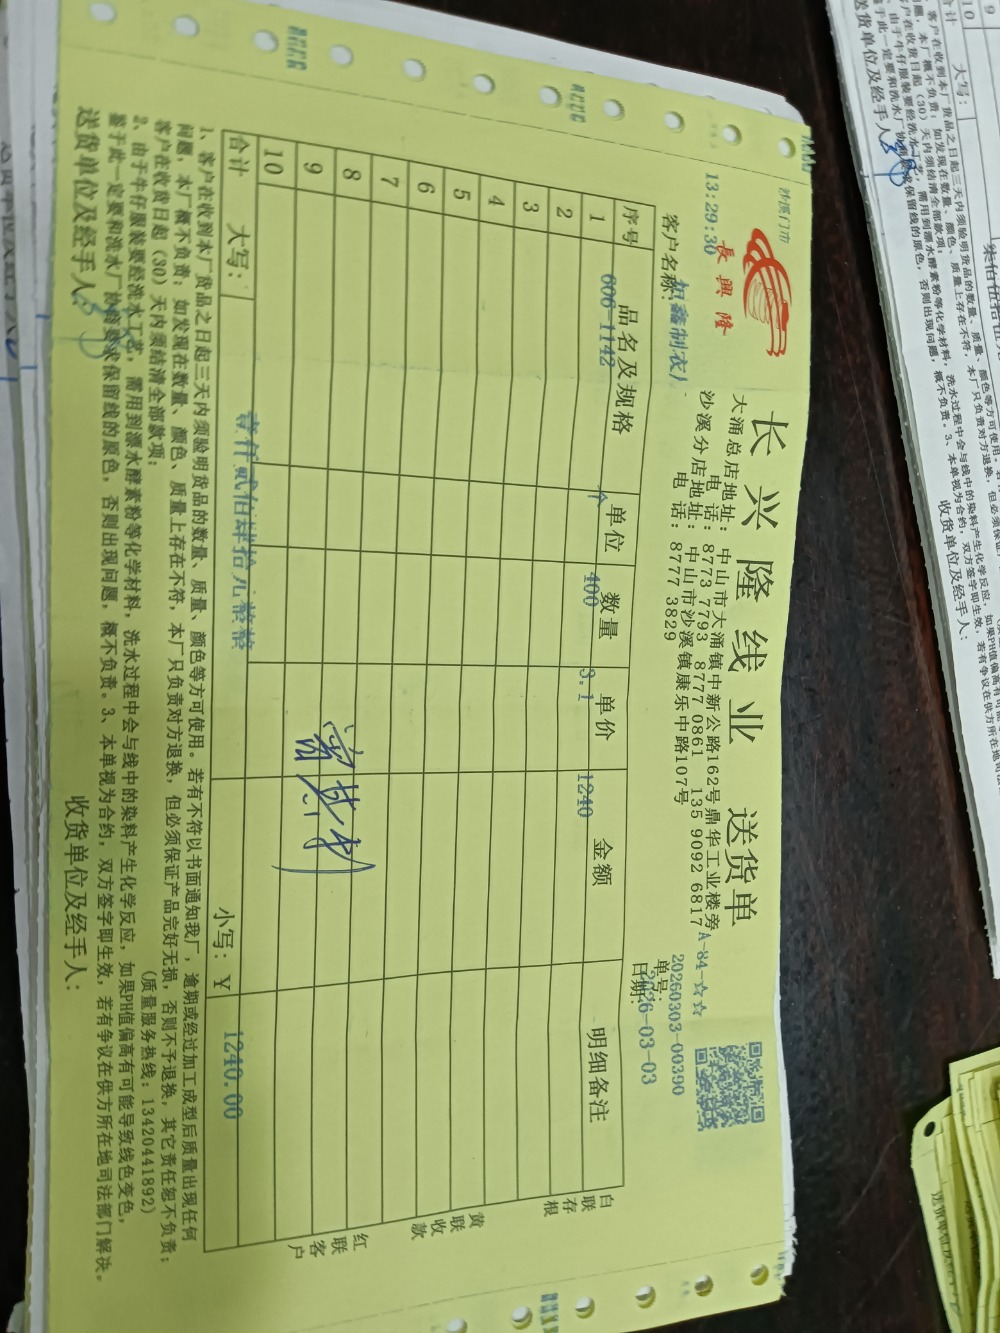 沙溪门市
長興隆
长兴隆线业 送货单
13:29:30
大涌总店地址: 中山市大涌镇中新公路162号鼎华工业楼旁
电 话: 8773 7793 8777 0861 135 9092 6817
沙溪分店地址: 中山市沙溪镇康乐中路107号
电 话: 8777 3829
A-84-☆☆
单号: 20260303-00390
日期: 2026-03-03
客户名称: 鑫制衣厂
序号 品名及规格 单位 数量 单价 金额 明细备注
1 606-1142 个 400 3.1 1240
2
3
4
5
6
7
8
9
10
合计 大写: 壹仟贰佰肆拾元整 小写: ¥ 1240.00
白联存根
黄联收款
红联客户
1、客户在收到本厂货品之日起三天内须验明货品的数量、质量、颜色等方可使用。若有不符以书面通知我厂,逾期或经过加工成型后质量出现任何
问题,本厂概不负责;如发现在数量、颜色、质量上存在不符,本厂只负责对方退换,但必须保证产品完好无损,否则不予退换,其它责任恕不负责;
客户在收货日起(30)天内须结清全部款项; (质量服务热线:13420441892)
2、由于牛仔服装要经洗水工艺,需用到漂水酵素粉等化学材料,洗水过程中会与线中的染料产生化学反应,如果PH值偏高有可能导致线色变色,
鉴于此一定要和洗水厂协商要求保留线的原色,否则出现问题,概不负责。3、本单视为合约,双方签字即生效,若有争议在供方所在地司法部门解决。
送货单位及经手人: 收货单位及经手人: